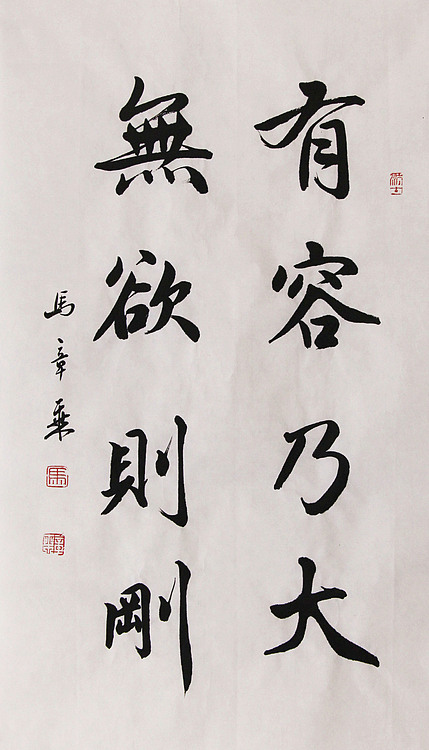 有容乃大
無欲則剛
馬章乘